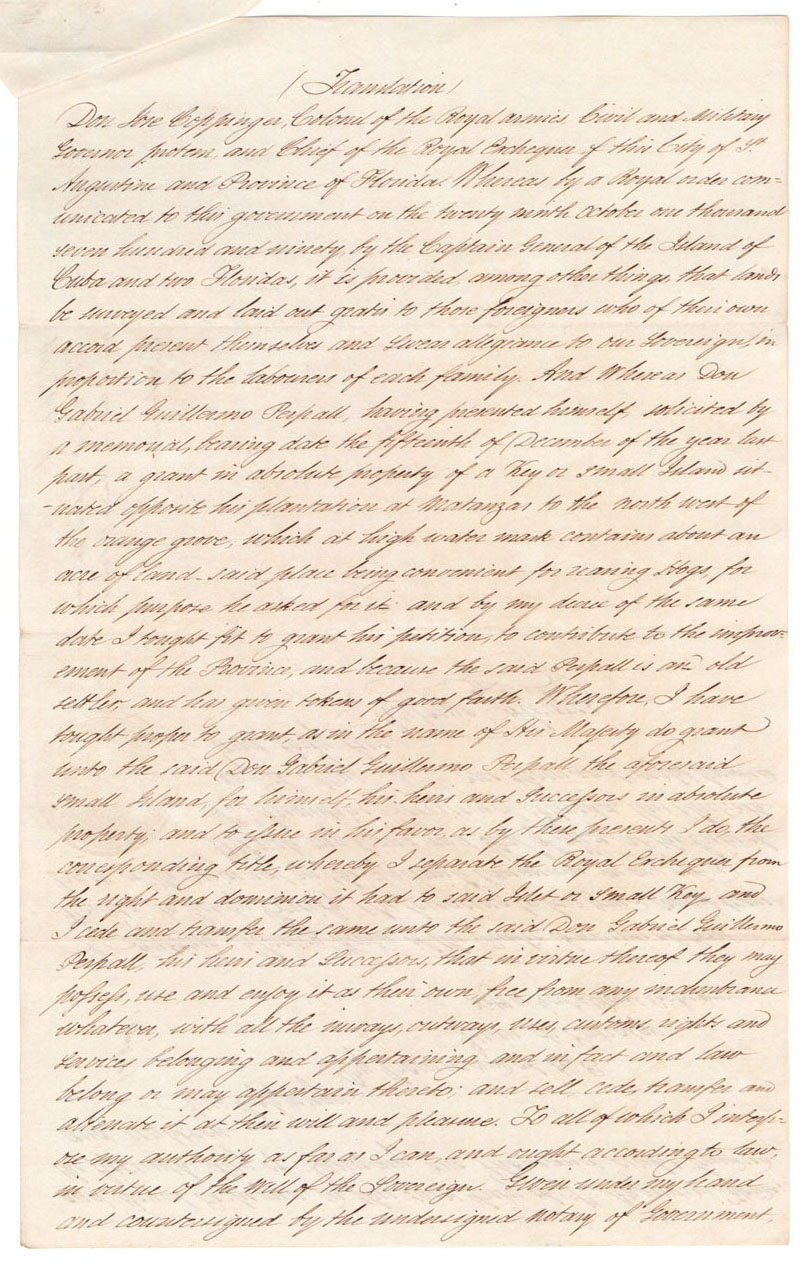 (Translation)
Don Jose Coppinger, Colonel of the Royal armies Civil and Military
Governor protem, and Chief of the Royal Exchequer of this City of St
Augustine and Province of Florida. Whereas by a Royal order com=
unicated to this government on the twenty ninth October one thousand
seven hundred and ninety, by the Captain General of the Island of
Cuba and two Floridas, it is provided, among other things, that lands
be surveyed and laid out gratis to those foreigners who of their own
accord present themselves and swear allegiance to our Sovereign, in
proportion to the labourers of each family. And Whereas Don
Gabriel Guillermo Perpall, having presented himself, solicited by
a memorial, bearing date the fifteenth of December of the year last
past, a grant in absolute property of a Key or small Island sit-
-uated opposite his plantation at Matanzas to the north west of
the orange grove, which at high water mark contains about an
acre of land. said place being convenient for rearing Hogs, for
which purpose he asked for it: and by my decree of the same
date I tought fit to grant his petition, to contribute to the improv=
ement of the Province, and because the said Perpall is an old
settler and has given tokens of good faith. Wherefore, I have
tought proper to grant, as in the name of His Majesty do grant
unto the said Don Gabriel Guillermo Perpall the aforesaid
small Island, for himself, his heirs and Successors in absolute
property; and to issue in his favor, as by these presents I do, the
corresponding title, whereby I separate the Royal Exchequer from
the right and dominion it had to said Islet or Small Key, and
I cede and transfer the same unto the said Don Gabriel Guillermo
Perpall, his heirs and Successors, that in virtue thereof they may
possess, use and enjoy it as their own, free from any incumbrance
whatever, with all the inways, outways, uses, customs, rights and
services belonging and appertaining and in fact and law
belong or may appertain thereto; and sell, cede, transfer and
alienate it at their will and pleasure. To all of which I interpo-
se my authority as far as I can, and ought according to law,
in virtue of the Will of the Sovereign. Given under my hand
and countersigned by the undersigned Notary of Government,